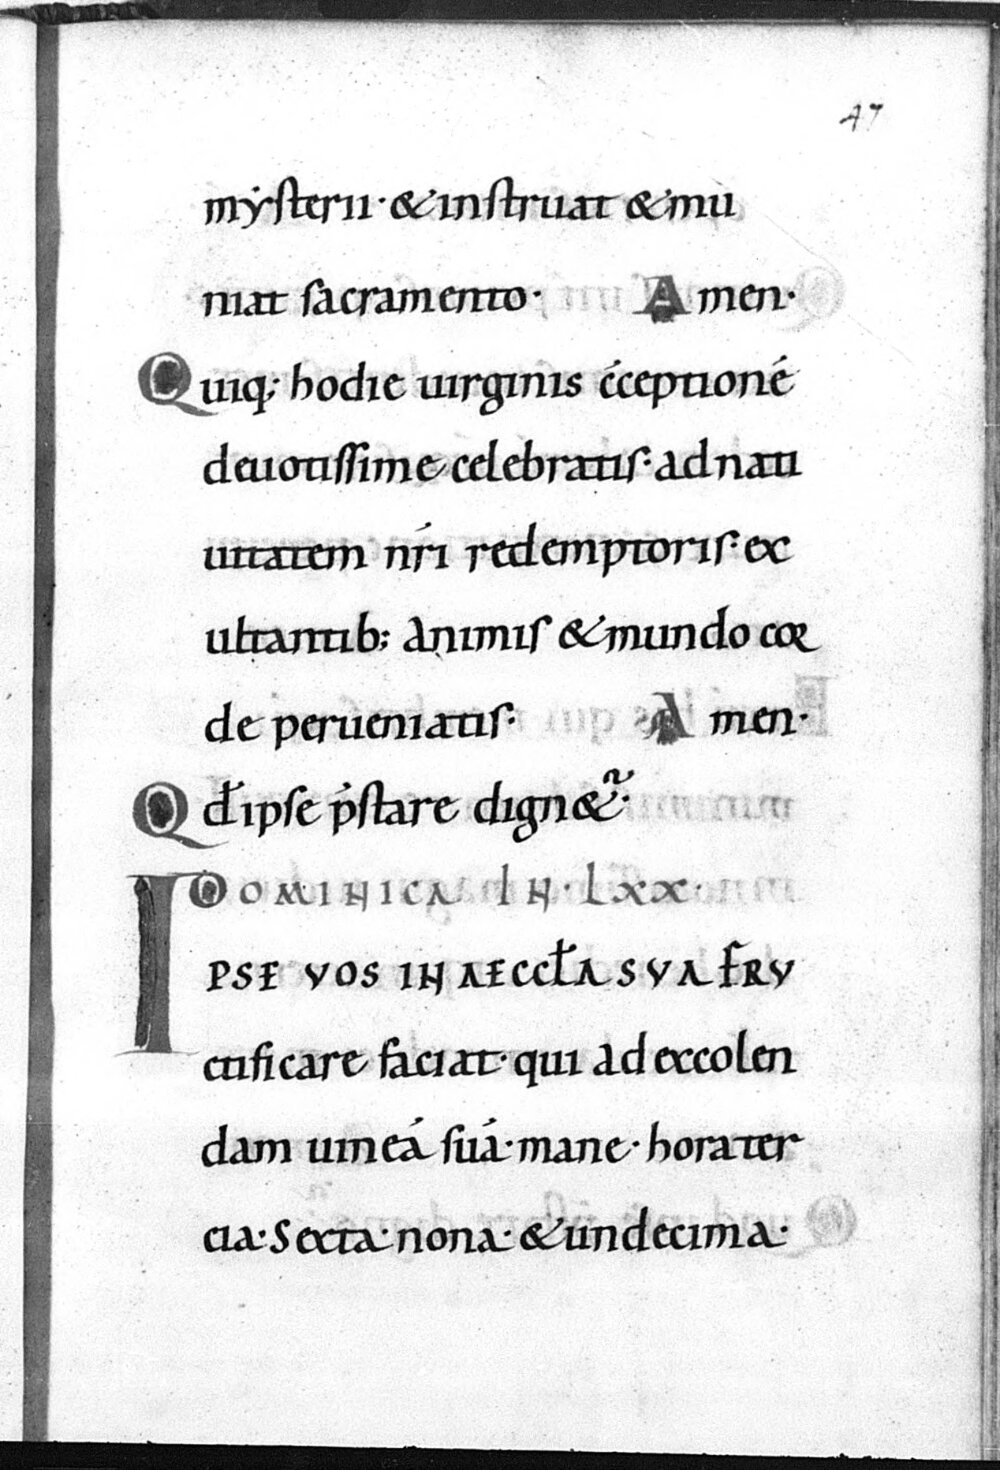 47
mẏsterii· & instruat & mu
niat sacramento· Amen·
Quiq; hodie uirginis ćceptioné
deuotissime celebratis· ad nati
uitatem nŕi redemptoris· ex
ultantib; animis & mundo cor
de perueniatis· Amen·
Qđ ipse p̓stare dign&ᷓ·
DOMINICA IN· LXX·
IPSE VOS IN AECCŁA SVA FRV
ctificare faciat· qui ad excolen
dam uineá suá· mane· hora ter
cia· Sexta· nona· & undecima·